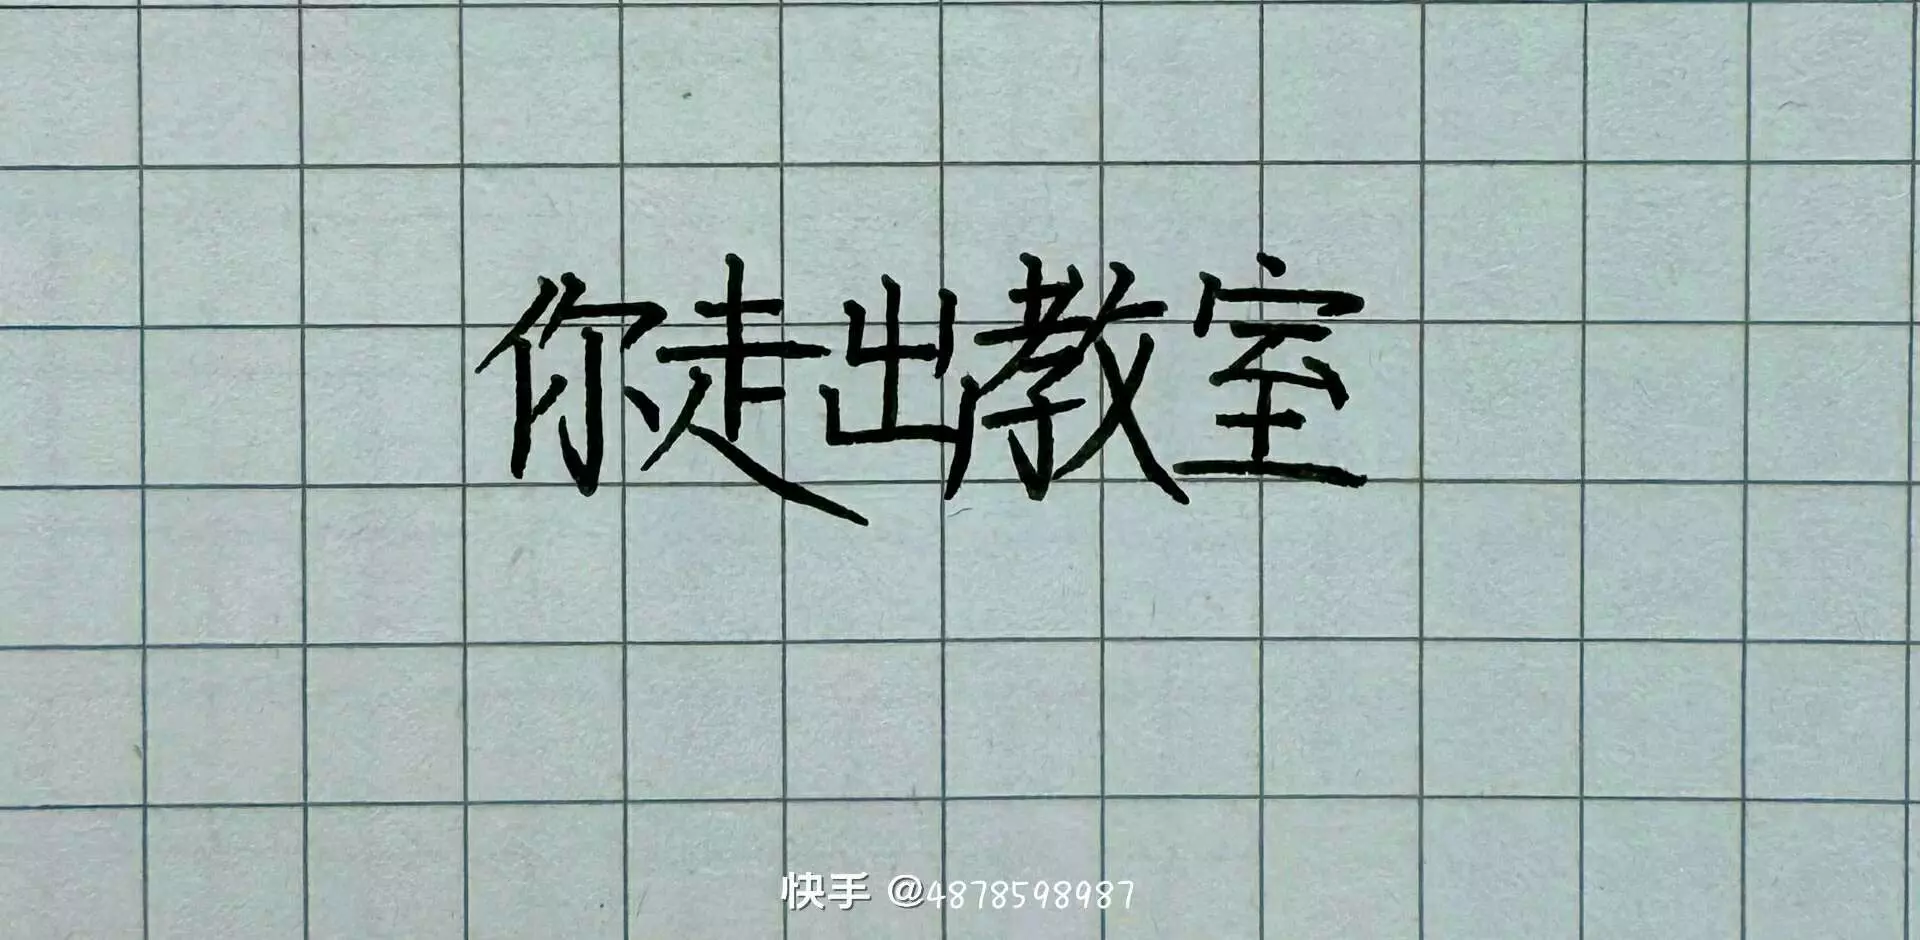 你走出教室
快手 @4878598987